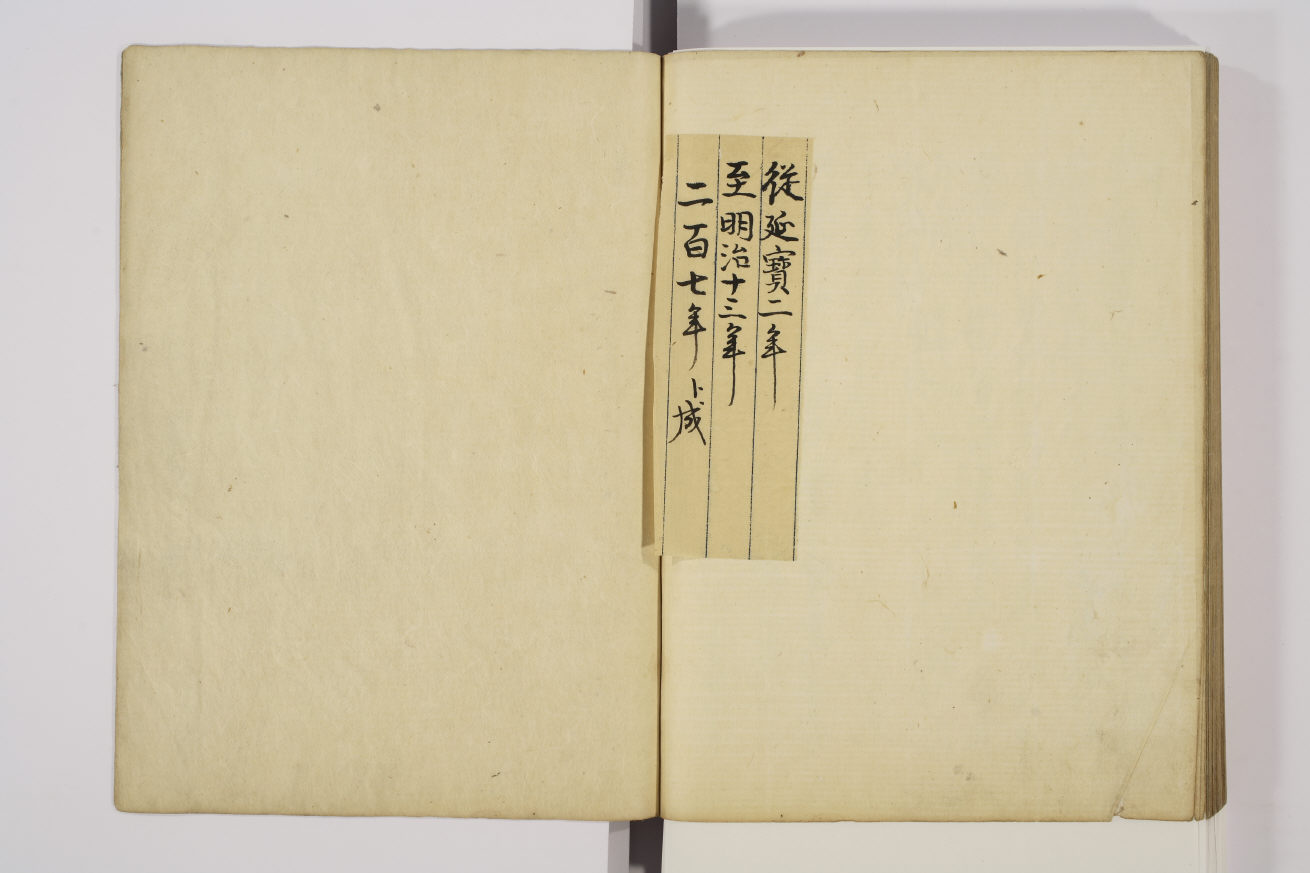 從延寶二年
至明治十三年
二百七年ト成